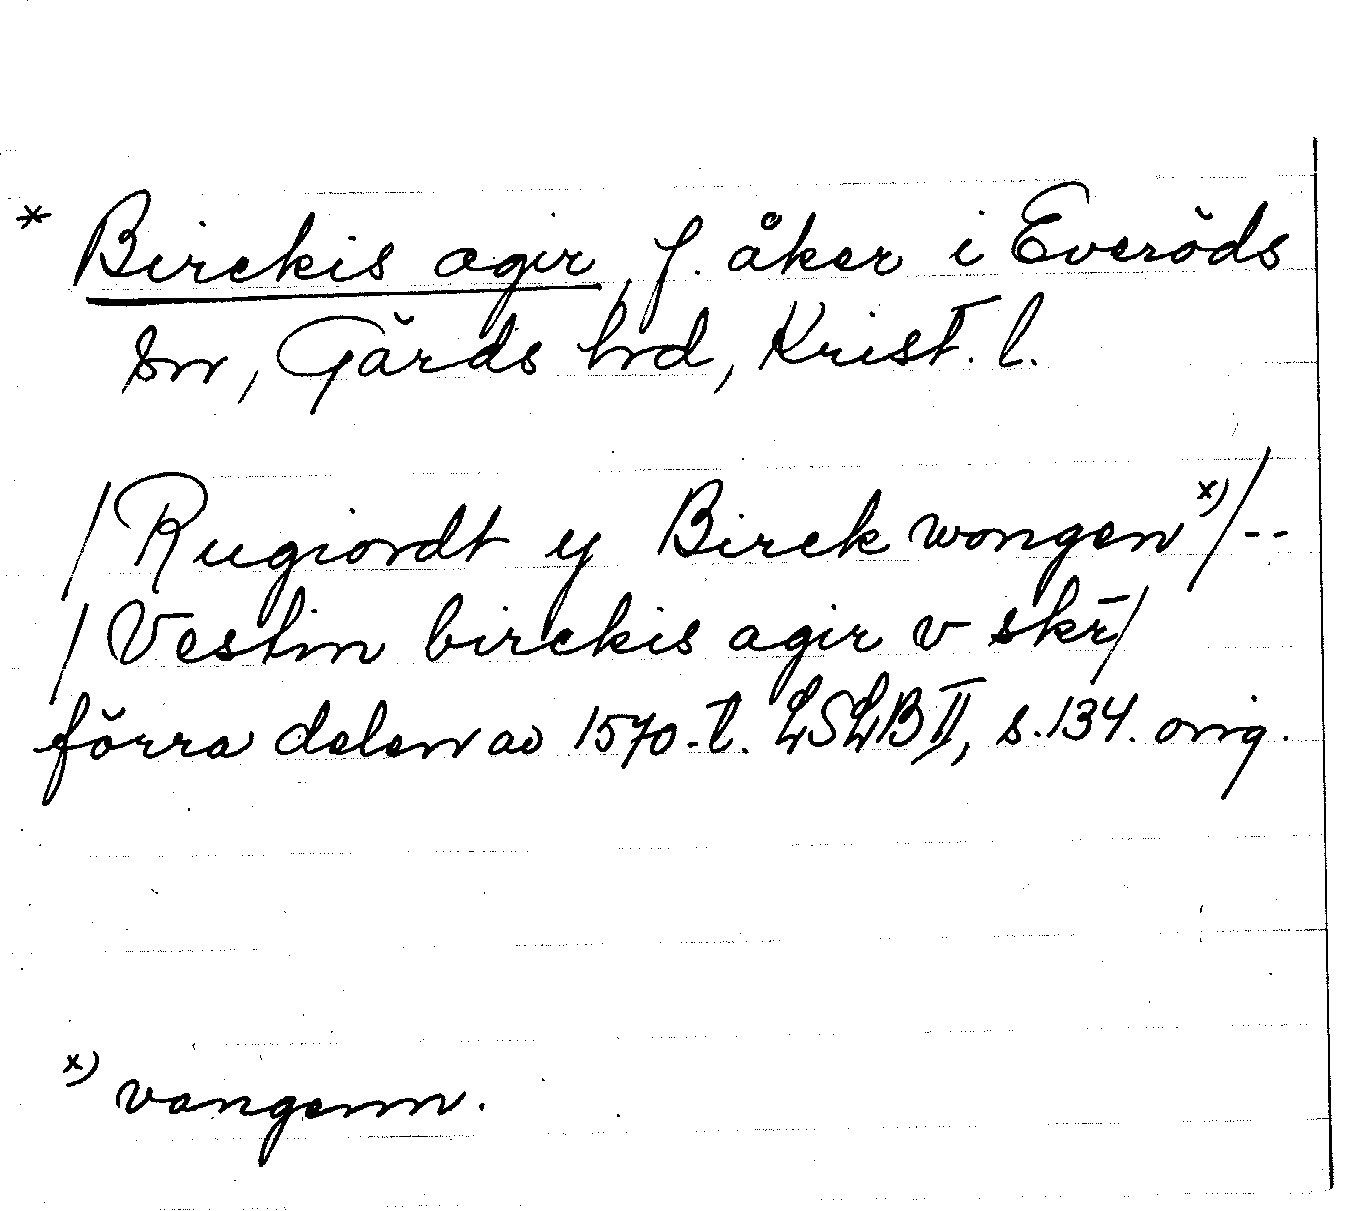 * Birckis agir, f. åker i Everöds
sn, Gärds hd, Krist. l.
/Rugiordt y Birck wongen x)/--
/Vestin birckis agir v skr̄/
förra delen av 1570-t. LSLB II, s. 134. orig.
x) vangenn.